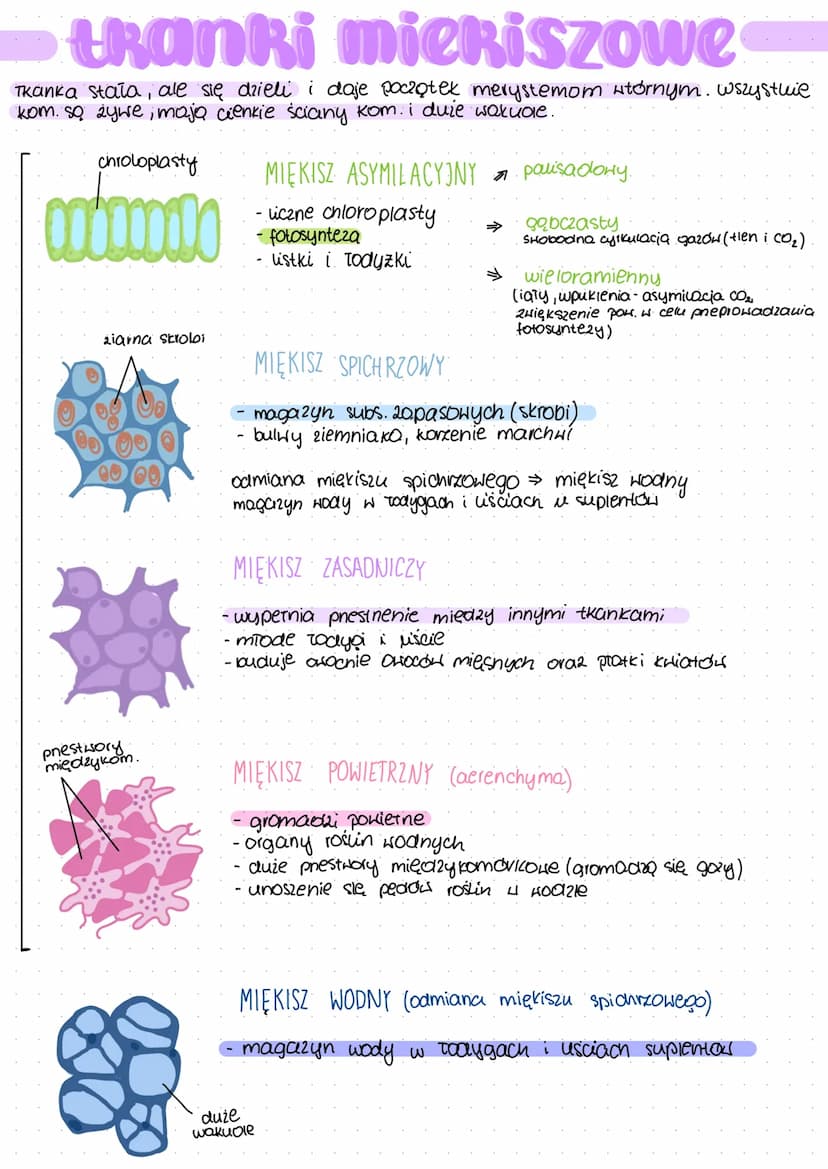 tkanki miękiszowe
Tkanka stała, ale się dzieli i daje początek merystemom wtórnym. Wszystkie
kom. są żywe, mają cienkie ściany kom. i duże wakuole.
chroloplasty
MIĘKISZ ASYMILACYJNY ⇗ palisadowy
- liczne chloroplasty
- fotosynteza
- listki i łodyżki
⇒ gąbczasty
swobodna cyrkulacja gazów (tlen i CO₂)
⇒ wieloramienny
(igły, wpuklenia - asymilacja CO₂,
zwiększenie pow. w celu przeprowadzania
fotosyntezy)
ziarna skrobi
MIĘKISZ SPICHRZOWY
- magazyn subs. zapasowych (skrobi)
- bulwy ziemniaka, korzenie marchwi
odmiana miękiszu spichrzowego ⇒ miękisz wodny
magazyn wody w łodygach i liściach u suplentów
MIĘKISZ ZASADNICZY
- wypełnia przestrzenie między innymi tkankami
- młode łodygi i liście
- buduje owocnie owoców mięsnych oraz płatki kwiatów
przestwory
międzykom.
MIĘKISZ POWIETRZNY (aerenchyma)
- gromadzi powietrze
- organy roślin wodnych
- duże przestwory międzykomórkowe (gromadzą się gazy)
- unoszenie się pędów roślin w wodzie
MIĘKISZ WODNY (odmiana miękiszu spichrzowego)
- magazyn wody w łodygach i liściach suplentów
duże
wakuole